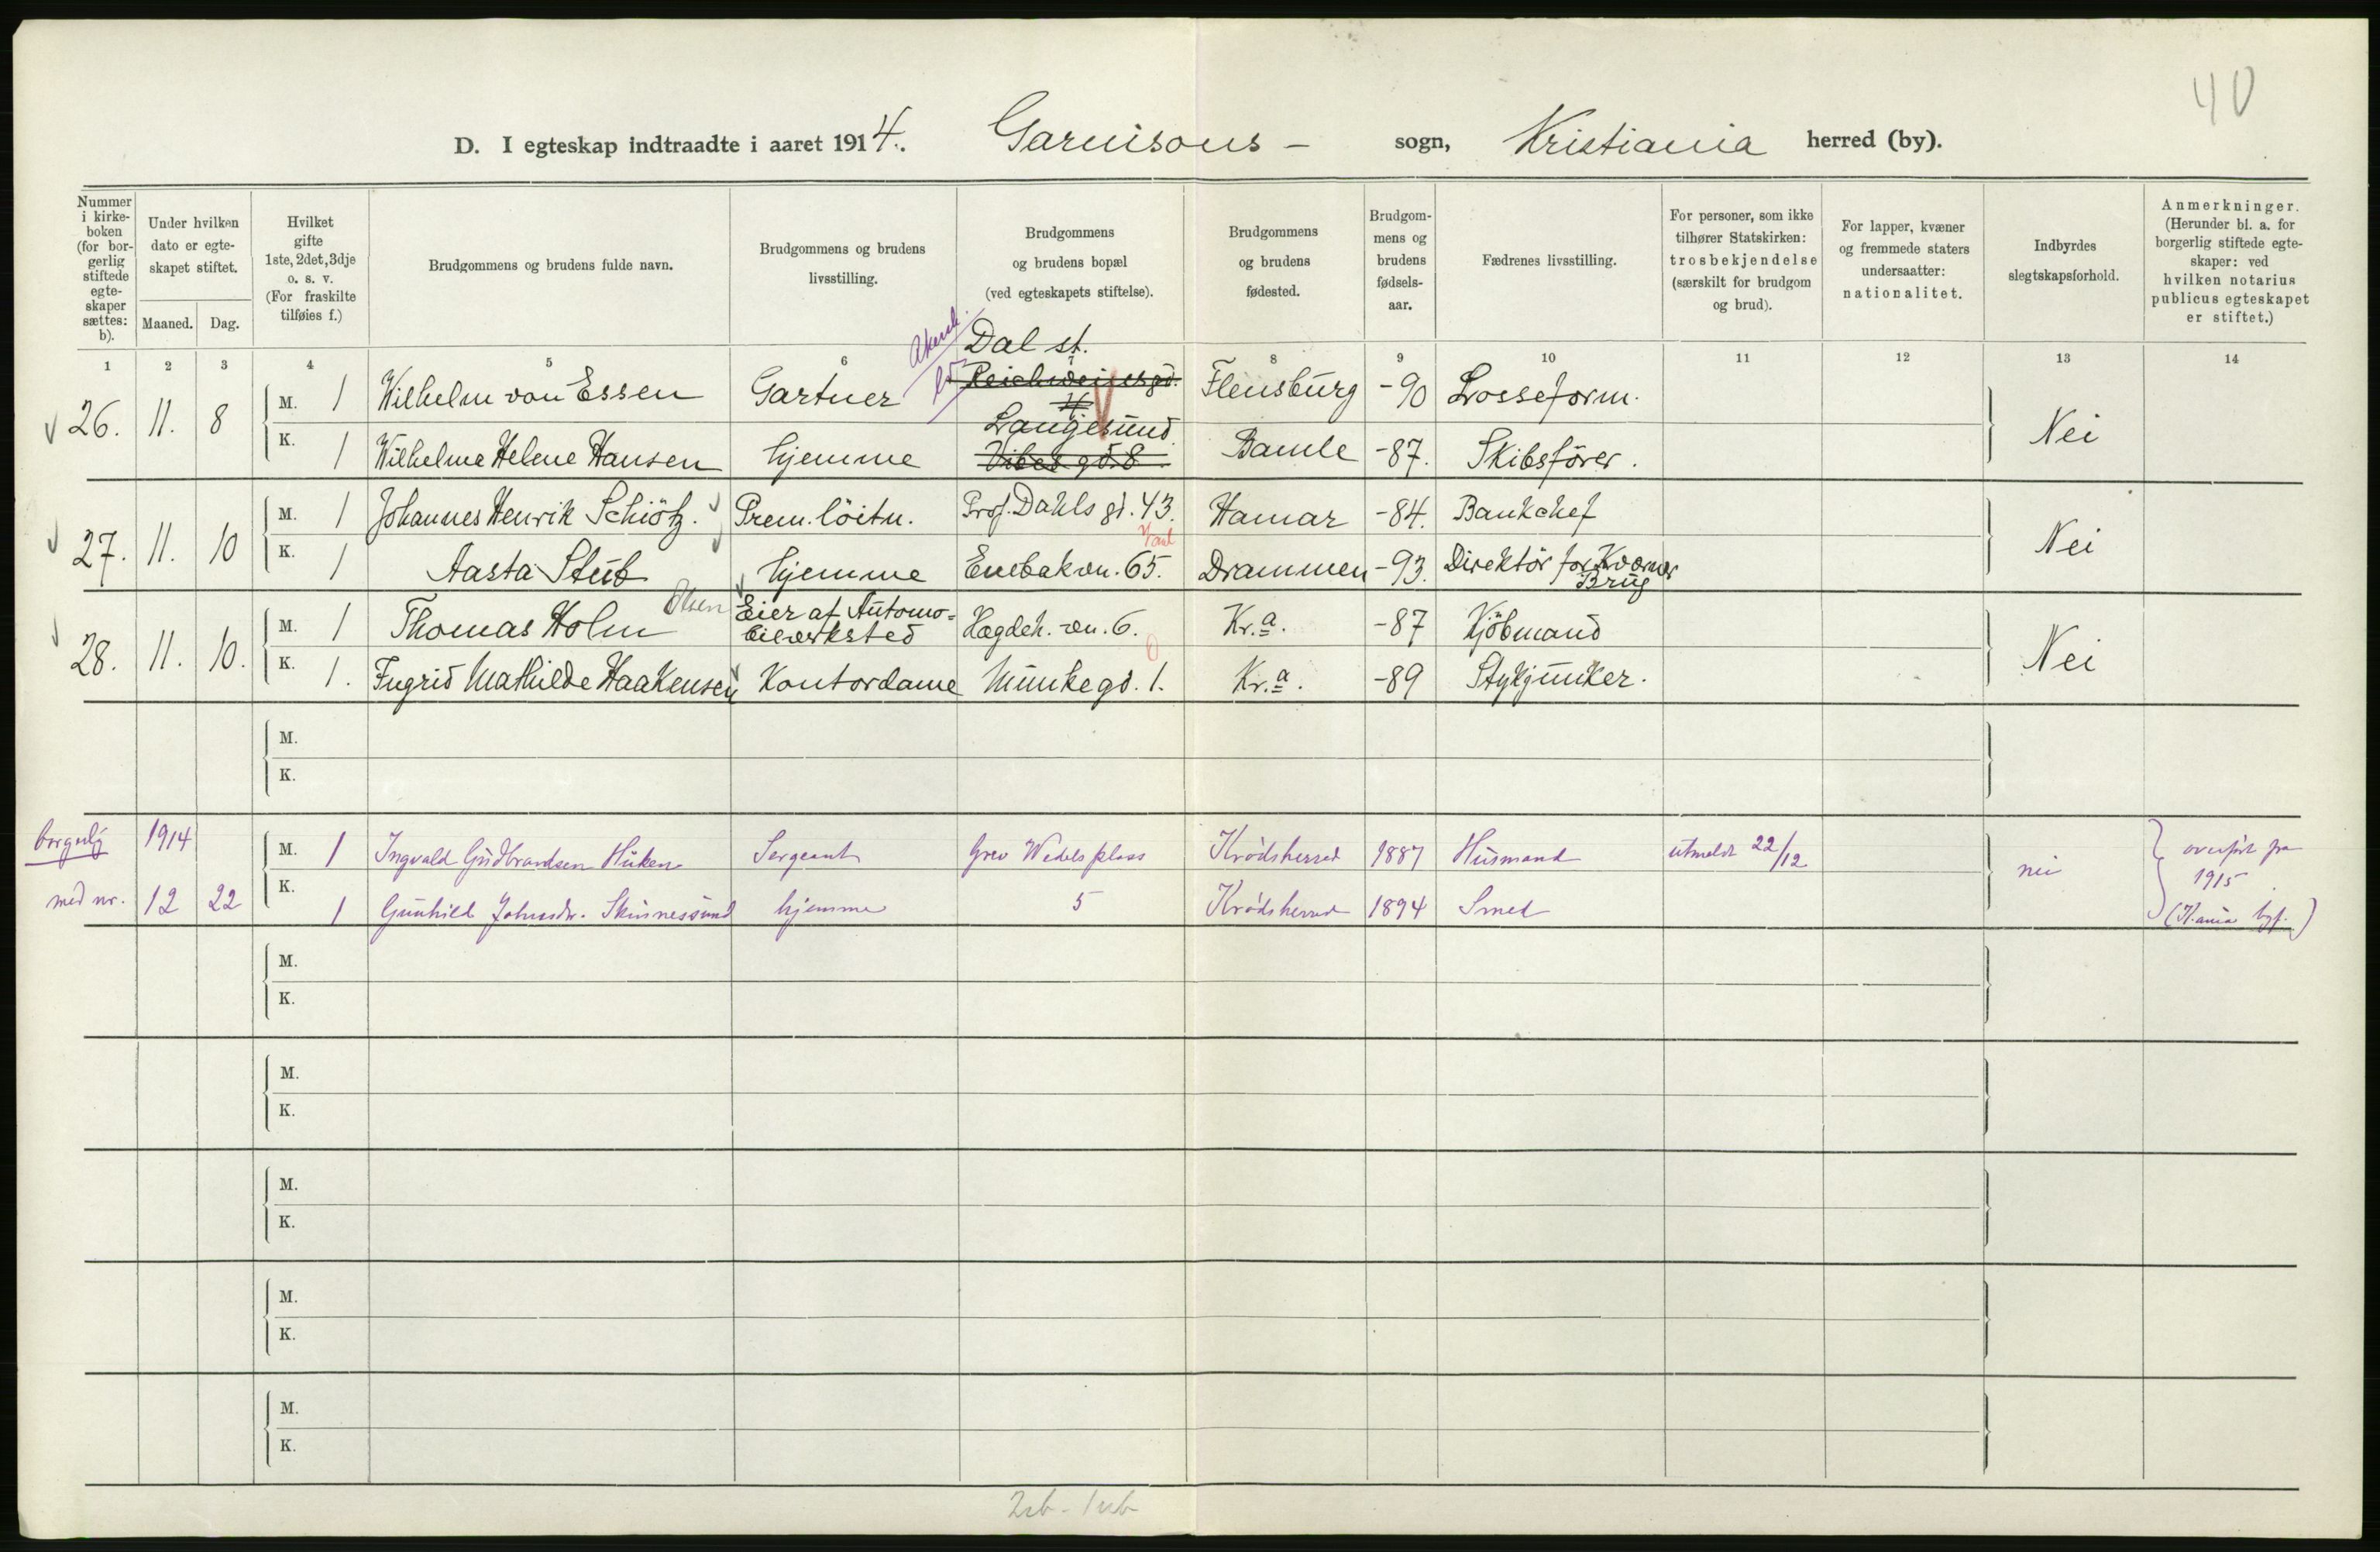 40
D. I egteskap indtraadte i aaret 1914. Garnisons - sogn, Kristiania herred (by).
Nummer i kirkeboken (for borgerlig stiftede egteskaper sættes: b).
Under hvilken dato er egteskapet stiftet.
Maaned. Dag.
Hvilket gifte 1ste, 2det, 3dje o. s. v. (For fraskilte tilføies f.)
Brudgommens og brudens fulde navn.
Brudgommens og brudens livsstilling.
Brudgommens og brudens bopæl (ved egteskapets stiftelse).
Brudgommens og brudens fødested.
Brudgommens og brudens fødselsaar.
Fædrenes livsstilling.
For personer, som ikke tilhører Statskirken: trosbekjendelse (særskilt for brudgom og brud).
For lapper, kvæner og fremmede staters undersaatter: nationalitet.
Indbyrdes slegtskapsforhold.
Anmerkninger. (Herunder bl. a. for borgerlig stiftede egteskaper: ved hvilken notarius publicus egteskapet er stiftet.)
1 2 3 4 5 6 8 9 10 11 12 13 14
26. 11. 8 M. 1 Wilhelm von Essen Gartner Dal st. Flensburg -90 Losseform. Nei
K. 1 Wilhelme Helene Hansen hjemme Langesund Vibes gd. 8 Bamle -87. Skibsfører.
27. 11. 10 M. 1 Johannes Henrik Schiötz. Prem. löitn. Prof. Dahls gt. 43. Hamar -84. Bankchef Nei
K. 1 Aasta Stub hjemme Enebakvn. 65. Drammen -93. Direktör for Kværner Brug
28. 11. 10. M. 1 Thomas Holm Olsen Eier af Automobilverksted Hægdeh. vn. 6. Kr.a. -87 Kjöbmand Nei
K. 1. Ingrid Mathilde Haakensen Kontordame Munkegd. 1. Kr.a. -89 Stykjunker.
M.
K.
borgerlig 1914 M. 1 Ingvald Gudbrandsen Huken Sergeant Grev Wedels plass Krødsherred 1887 Husmand utmeldt 22/12 nei overført fra 1915
med nr. 12 22 K. 1 Gunhild Johnsdr. Skinnessund hjemme 5 Krødsherred 1894 Smed (K.ania byf.)
M.
K.
M.
K.
M.
K.
M.
K.
M.
K.